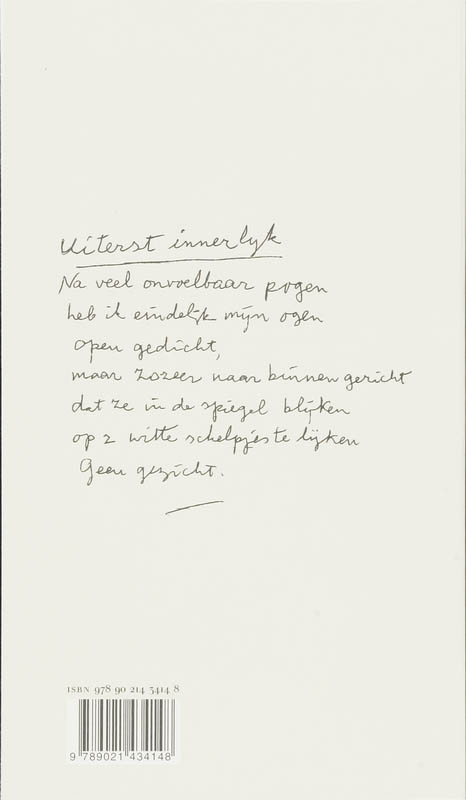 Uiterst innerlyk
Na veel onvoelbaar pogen
heb ik eindelijk mijn ogen
open gedicht,
maar zozeer naar binnen gericht
dat ze in de spiegel blijken
op 2 witte schelpjes te lijken
Geen gezicht.
ISBN 978 90 214 3414 8
9 789021 434148